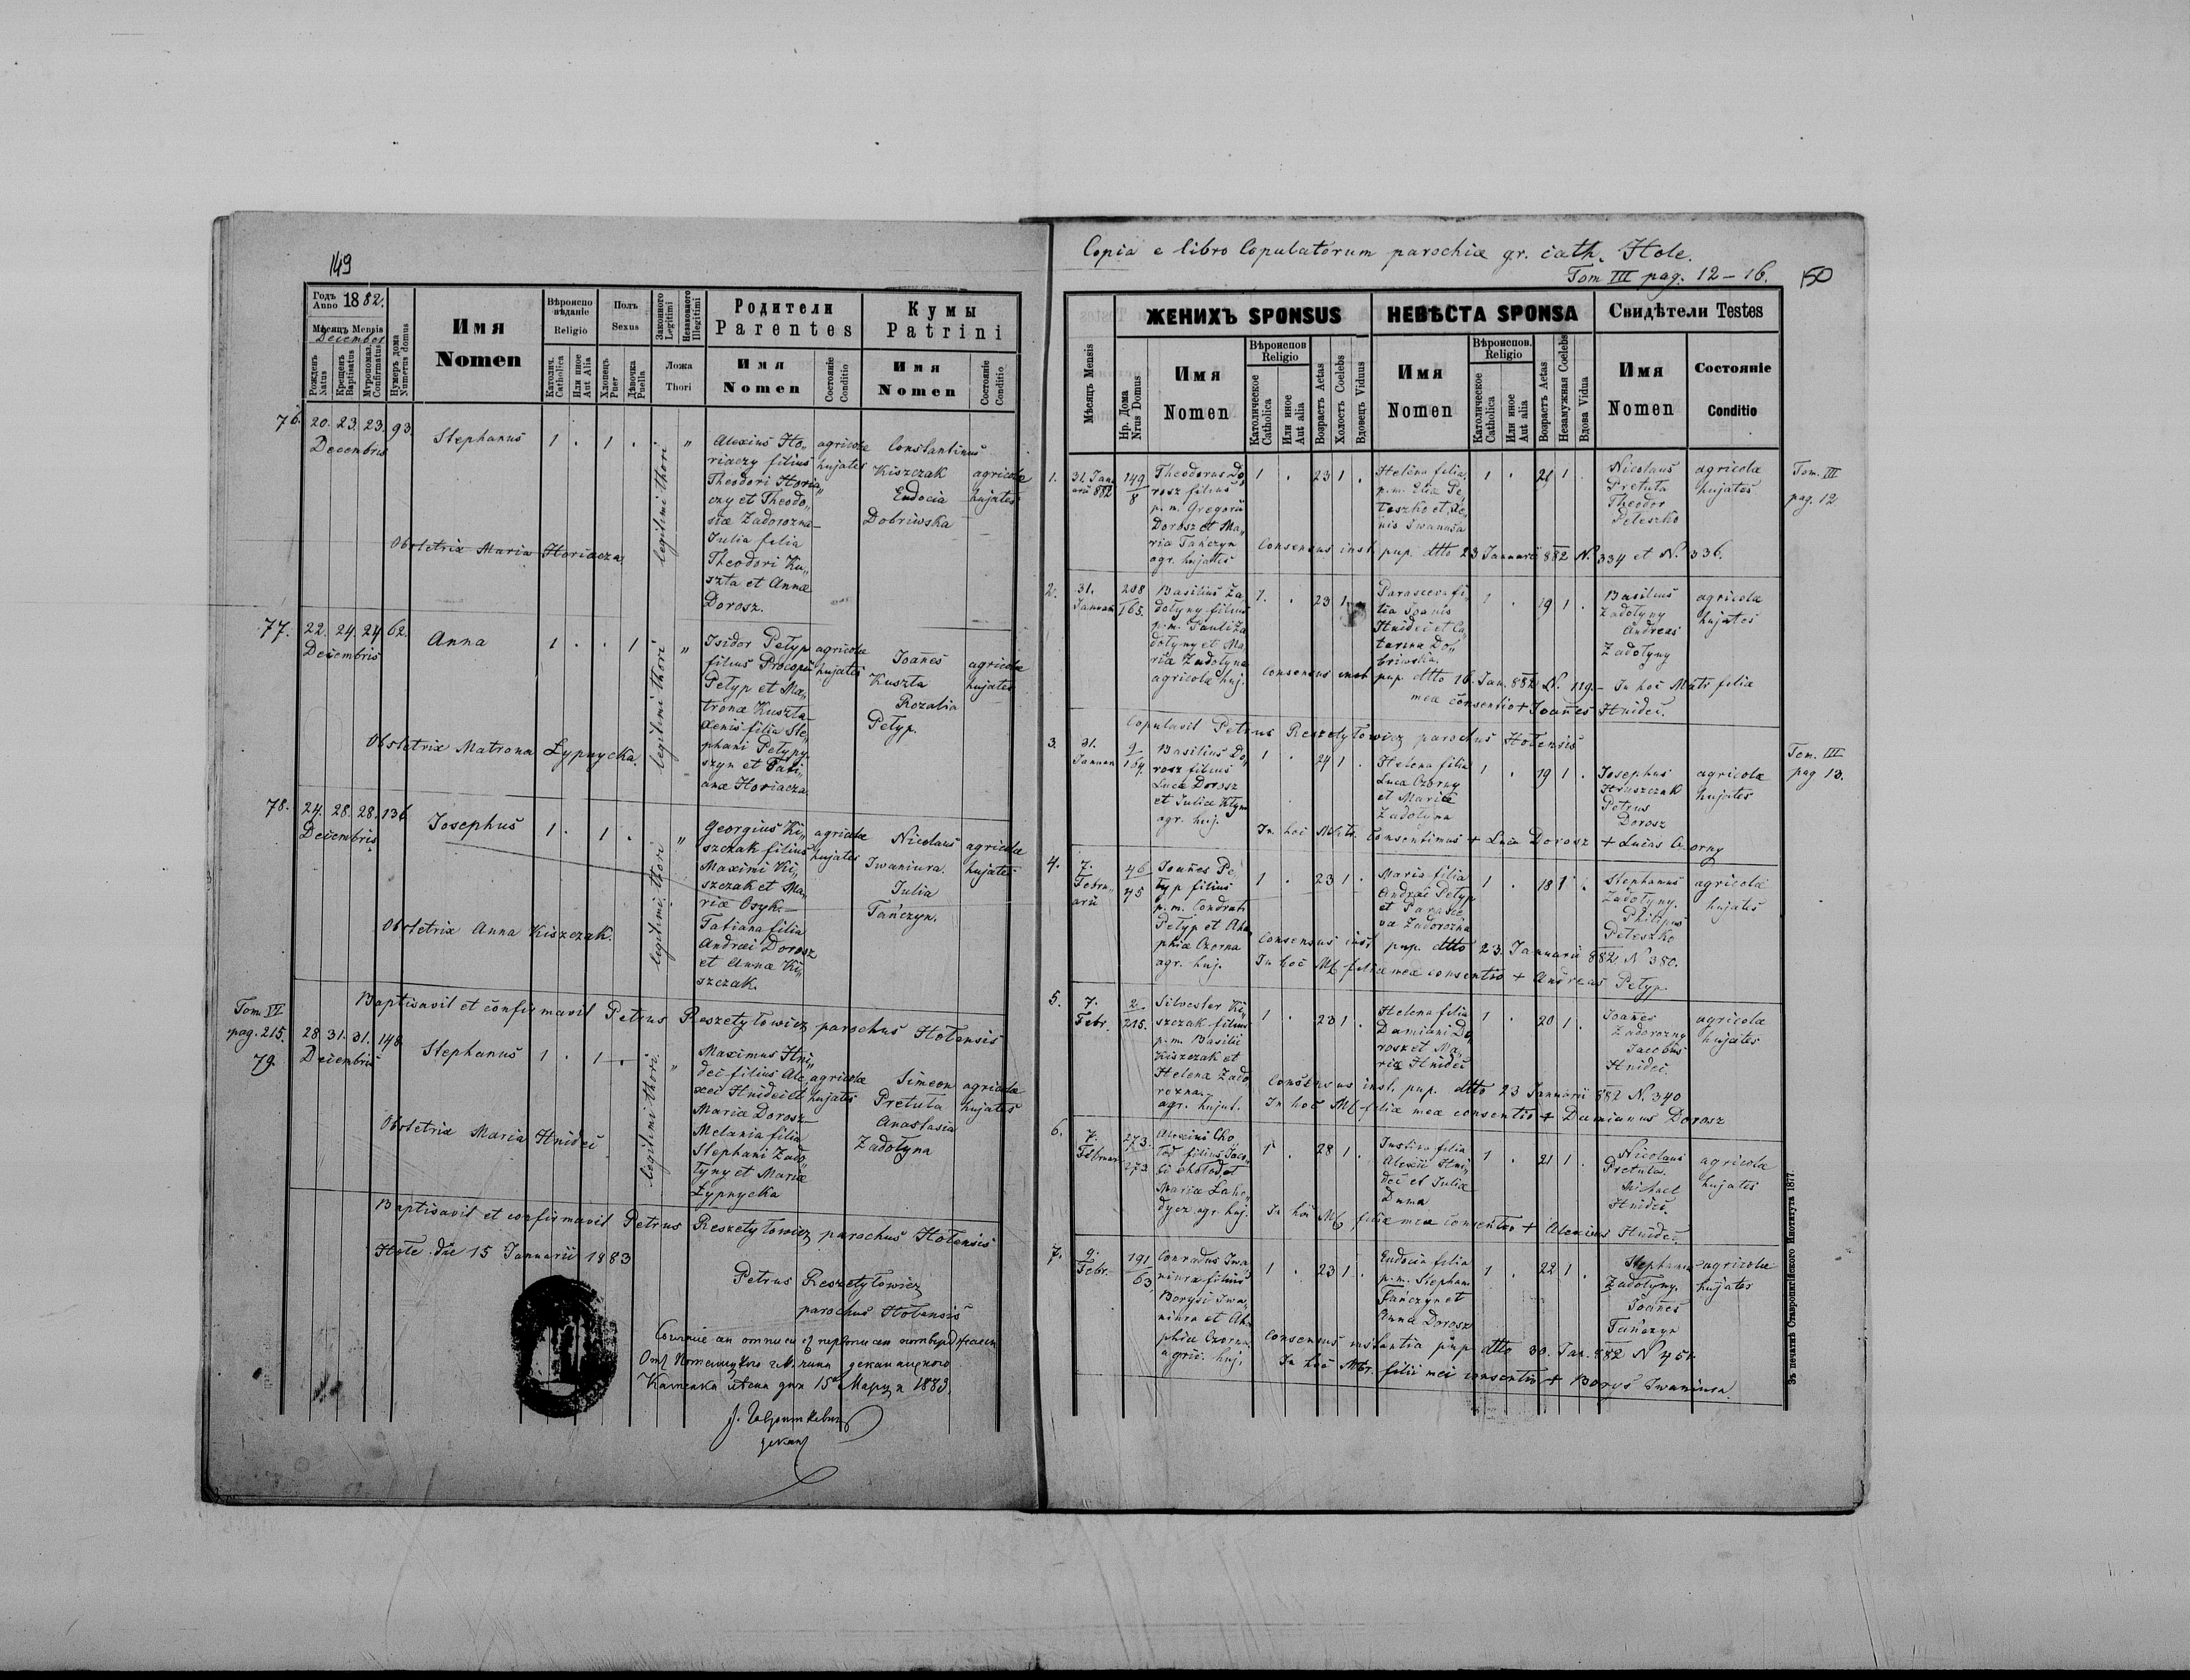 149
Годъ Anno 1882.
Мѣсяцъ Mensis Decembor
Рожденъ Natus
Крещенъ Baptisatus
Муропомаз. Confirmatus
Нумеръ дома Numerus domus
Имя
Nomen
Вѣроиспо вѣданіе
Religio
Католич. Catholica
Или иное Aut Alia
Полъ
Sexus
Хлопецъ Puer
Дѣвочка Puella
Законного Legitimi
Незаконного Illegitimi
Ложа
Thori
Родители
Parentes
Имя
Nomen
Состояніе
Conditio
Кумы
Patrini
Имя
Nomen
Состояніе
Conditio
76. 20. 23. 23. 93.
Decembris
Stephanus 1 . 1 . .
legitimi thori "
Alexius Ho„
riaczy filius
Theodori Horia„
czy et Theodo„
siæ Zadorozna—
Julia filia
Theodori Ku„
szta et Annæ
Dorosz.
agricolæ
hujates
Constantinus
Kiszczak
Eudocia
Dobriwska
agricolæ
hujates
Obstetrix Maria Horiacza
77. 22. 24. 24. 62.
Decembris
Anna 1 . . 1
legitimi thori "
Isidor Petyp
filius Procopii
Petyp et Ma„
tronæ Kuszta—
Xenis filia Ste„
phani Petypy„
szyn et Tati„
anæ Horiacza
agricolæ
hujates
Joanes
Kuszta
Rozalia
Petyp.
agricolæ
hujates
Obstetrix Matrona Łypnycka.
78. 24. 28. 28. 136
Decembris
Josephus 1 . 1 .
legitimi thori "
Georgius Ki„
szczak filius
Maximi Ki„
szczak et Ma„
riæ Osyk.—
Tatiana filia
Andreæi Dorosz
et Annæ Ki„
szczak.
agricolæ
hujates
Nicolaus
Iwaniura.
Julia
Tańczyn.
agricolæ
hujates
Obstetrix Anna Kiszczak.
Baptisavit et confirmavit Petrus Reszetyłowicz parochus Hołensis
Tom. IV
pag. 215.
79. 28. 31. 31. 148
Decembris
Stephanus 1 . 1 .
legitimi thori. "
Maximus Hni„
deć filius Ale„
xei Hnideć et
Maria Dorosz—
Melania filia
Stephani Zado„
łyny et Mariæ
Łypnycka
agricolæ
hujates
Simeon
Pretuła
Anastasia
Zadołyna
agricolæ
hujates
Obstetrix Maria Hnideć
Baptisavit et confirmavit Petrus Reszetyłowicz parochus Hołensis
Hołe die 15 Januarii 1883
Petrus Reszetyłowicz
parochus Hołensis
15 Марца 1883.
Copia e libro Copulatorum parochiæ gr. cath. Hole.
Tom III pag. 12 – 16.
150
Мѣсяцъ Mensis
Нр. Дома Nrus Domus
ЖЕНИХЪ SPONSUS
Имя
Nomen
Вѣроиспов Religio
Католическое Catholica
Или иное Aut alia
Возрастъ Aetas
Холостъ Coelebs
Вдовецъ Viduus
НЕВѢСТА SPONSA
Имя
Nomen
Вѣроиспов. Religio
Католическое Catholica
Или иное Aut alia
Возрастъ Aetas
Незамужная Coelebs
Вдова Vidua
Свидѣтели Testes
Имя
Nomen
Состояніе
Conditio
1. 31. Janu
arii 882
149
8
Theodorus Do„
rosz filius
p. m. Gregorii
Dorosz et Ma„
ria Tańczyn
agr. hujates
1 . 23 1 .
Helena filia
p. m. Eliæ Pe„
teszko et Xe„
nis Iwanusa
1 . 21 1
Nicolaus
Pretuła
Theodor
Peteszko
agricolæ
hujates
Tom. III
pag. 12
Consensus inst. pup. dtto 23 Januarii 882 N. 334 et N. 336.
2. 31.
Januar.
208
165.
Basilius Za
dołyny filius
p. m. Pauli Za
dołyny et Ma„
ria Zadołyna
agricolæ huj.
1. . 23 1
Parasceva fi„
lia Joanis
Hnideć et Ca„
tarina Do„
briwska.
1 . 19 1 .
Basilius
Zadołyny
Andreas
Zadołyny
agricolæ
hujates
Consensus inst. pup. dtto 16. Jan. 882 N. 119.– In hoc Matr. filiæ
meæ consentio + Joanes Hnideć.
Copulavit Petrus Reszetyłowicz parochus Hołensis
3. 31.
Januar
9
164.
Basilius Do„
rosz filius
Lucæ Dorosz
et Juliæ Kłym
agr. huj.
1 . 24 1 .
Helena filia
Lucæ Czorny
et Mariæ
Zadołyna
1 . 19 1 .
Josephus
Hruszczak
Petrus
Dorosz
agricolæ
hujates
Tom. III
pag. 13.
In hoc Mtr. Consentimus + Luca Dorosz + Lucas Czorny
4. 7.
Febru„
arii
46
45
Joanes Pe„
typ filius
p. m. Condrati
Petyp et Aha„
phiæ Czorna
agr. huj.
1 . 23 1 .
Maria filia
Andreæi Petyp
et Parasce„
væ Zadorozna
1 . 18 1 .
Stephanus
Zadołyny.
Philipus
Peteszko
agricolæ
hujates
Consensus inst. pup. dtto 23. Januarii 882. N 380.
In hoc Mt filiæ meæ consentio + Andreas Petyp.
5. 7.
Febr.
2
215.
Silvester Ki„
szczak filius
p. m. Basilii
Kiszczak et
Helenæ Zado„
rozna.
agr. hujat.
1 . 23 1 .
Helena filia
Damiani Do„
rosz et Ma„
riæ Hnideć
1 . 20 1 .
Joanes
Zadorozny
Jacobus
Hnideć
agricolæ
hujates
Consensus inst. pup. dtto 23 Januarii 882 N. 340
In hoc Mt filiæ meæ consentio + Damianus Dorosz
6. 7.
Februar
273.
273
Alexius Cho„
łod filius Jaco„
bi Chołod et
Mariæ Łaho„
dycz agr. huj.
1 . 28 1 .
Justina filia
Alexii Hni„
deć et Juliæ
Duma
1 . 21 1 .
Nicolaus
Pretuła.
Michael
Hnideć.
agricolæ
hujates
In hoc Mt filiæ meæ consentio + Alexius Hnideć.
7. 9.
Febr.
191
63,
Conradus Iwa„
niura filius
Borysi Iwa„
niura et Aha„
phiæ Czorna
agric. huj.
1 . 23 1 .
Eudocia filia
p. m. Stephani
Tańczyn et
Anna Dorosz
1 . 22 1 .
Stephanus
Zadołyny.
Joanes
Tańczyn
agricolæ
hujates
Consensus instantia pup dtto 30. Jan. 882 N 451.
In hoc Mtr. filii mei consentio + Borys Iwaniura.
Зъ печатнѣ Ставропигійского Института 1877.